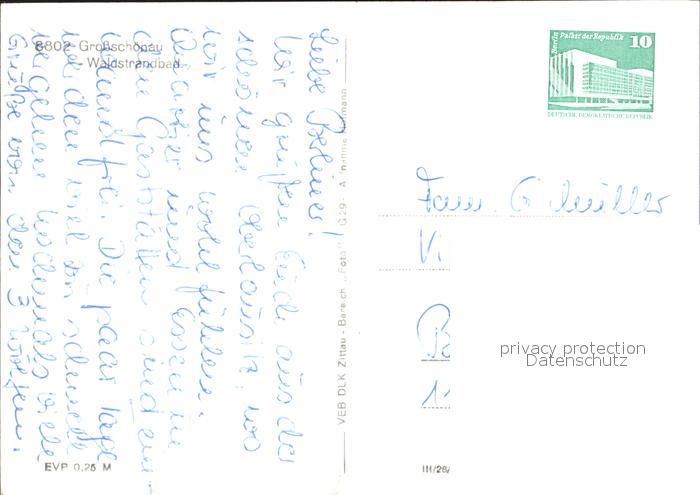 8802 Großschönau
Waldstrandbad
Liebe Berliner!
Wir grüßen Euch aus der
schönen Oberlausitz, wo
wir uns wohl fühlen.
Quartier und Essen in
den Gaststätten sind ein-
wandfrei. Die paar Tage
werden viel zu schnell
vergehen. Nochmals viele
Grüße von den 3
EVP 0,25 M
VEB DLK Zittau - Bereich „Foto"
G 29
III/26/
Berlin Palast der Republik 10
DEUTSCHE DEMOKRATISCHE REPUBLIK
Fam. G. Müller
privacy protection
Datenschutz